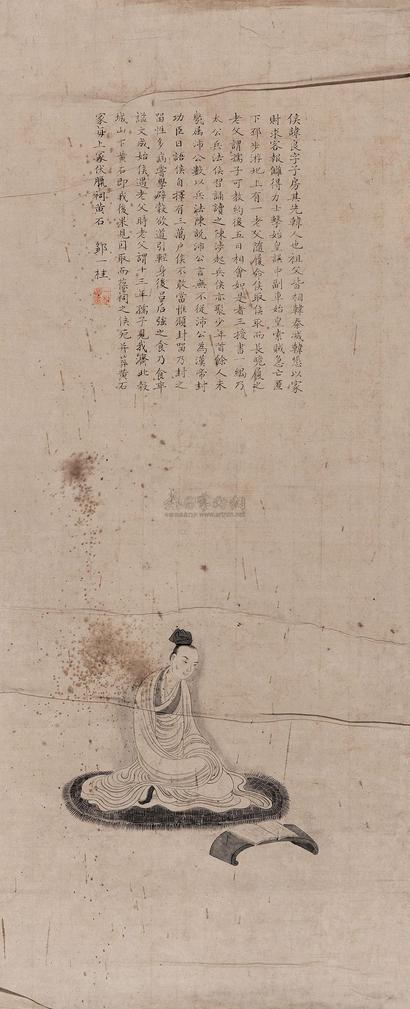 侯諱良字子房其先韓人也祖父皆相韓秦滅韓悉以家
財求客報讎得力士擊始皇誤中副車始皇索賊急亡匿
下邳步游圯上有一老父墮履命侯取侯取而長跪履之
老父謂孺子可教約後五日相會如是者三授書一編乃
太公兵法侯習誦讀之陳涉起兵侯亦聚少年百餘人未
幾屬沛公數以兵法陳說沛公言無不從沛公為漢帝封
功臣日語侯自擇有三萬戶侯不敢當惟願封留乃封之
留性多病嘗學辟穀欲道引輕身後呂后強之食乃食卒
諡文成始侯遇老父時老父謂十三年孺子見我濟北穀
城山下黃石即我後果見因取而葆祠之侯死并葬黃石
家每上冢伏臘祠黃石
鄒一桂
www.artron.net